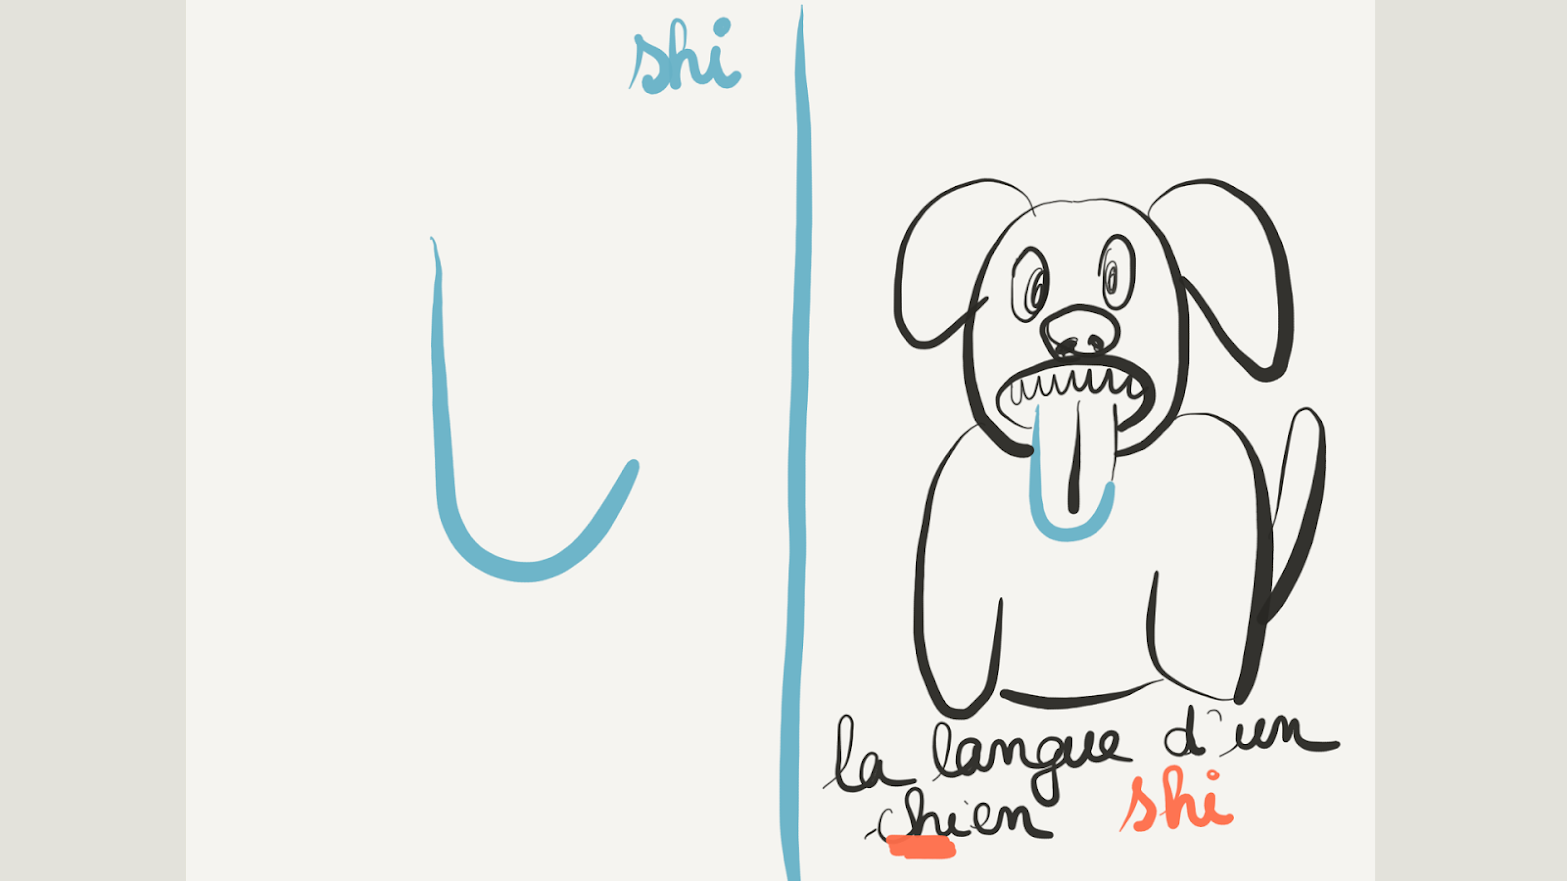 shi
し
la langue d'un
chien shi